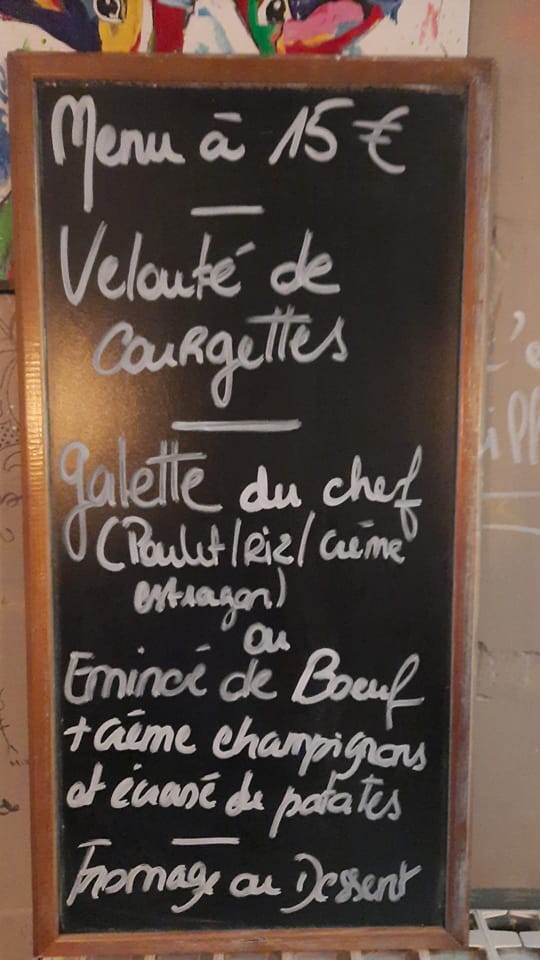 Menu à 15 €
Velouté de
courgettes
galette du chef
(Poulet/Riz/crème
estragon)
ou
Emincé de Boeuf
+ crème champignons
et écrasé de patates
Fromage ou Dessert